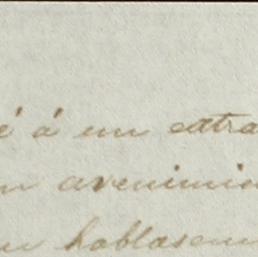 é á un estra
n avenimin
n hablasem